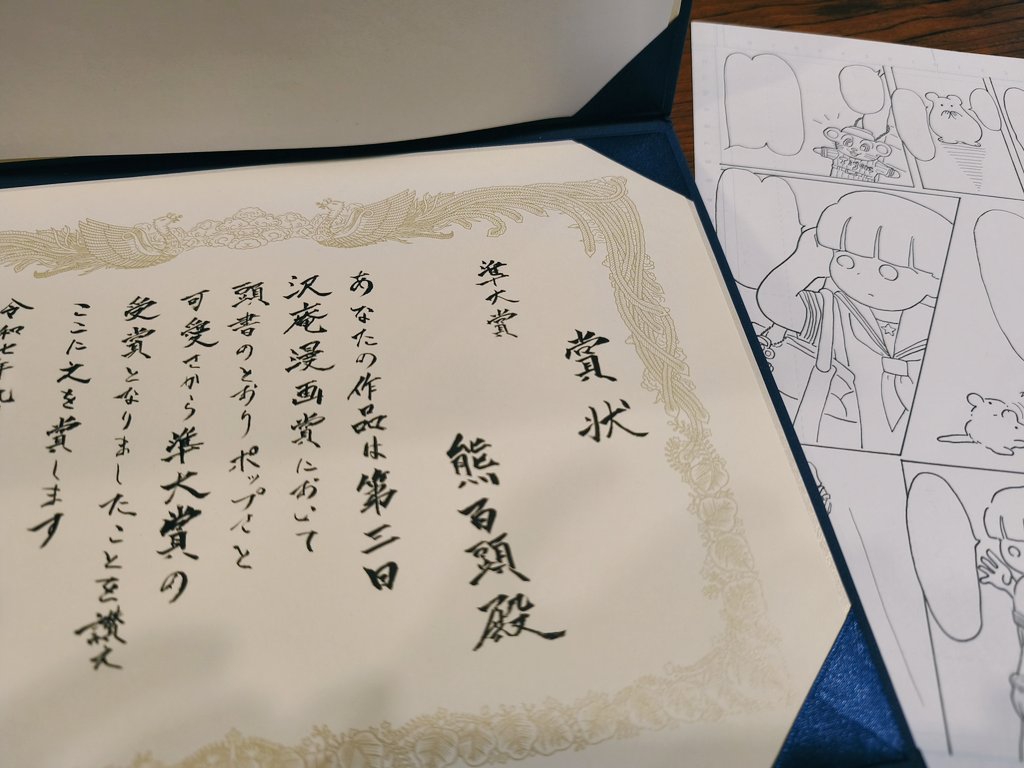 賞状
準大賞
熊百頭殿
あなたの作品は第三回
沢庵漫画賞において
頭書のとおりポップさと
可愛さから準大賞の
受賞となりましたことを讃え
ここに文を賞します
令和七年九